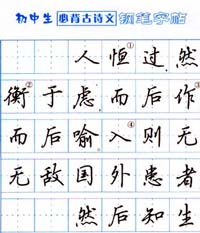 初中生 必背古诗文 钢笔字帖
人恒①过,然
衡②于虑,而后作③
而后喻。入④则无
无敌国外患者
然后知生